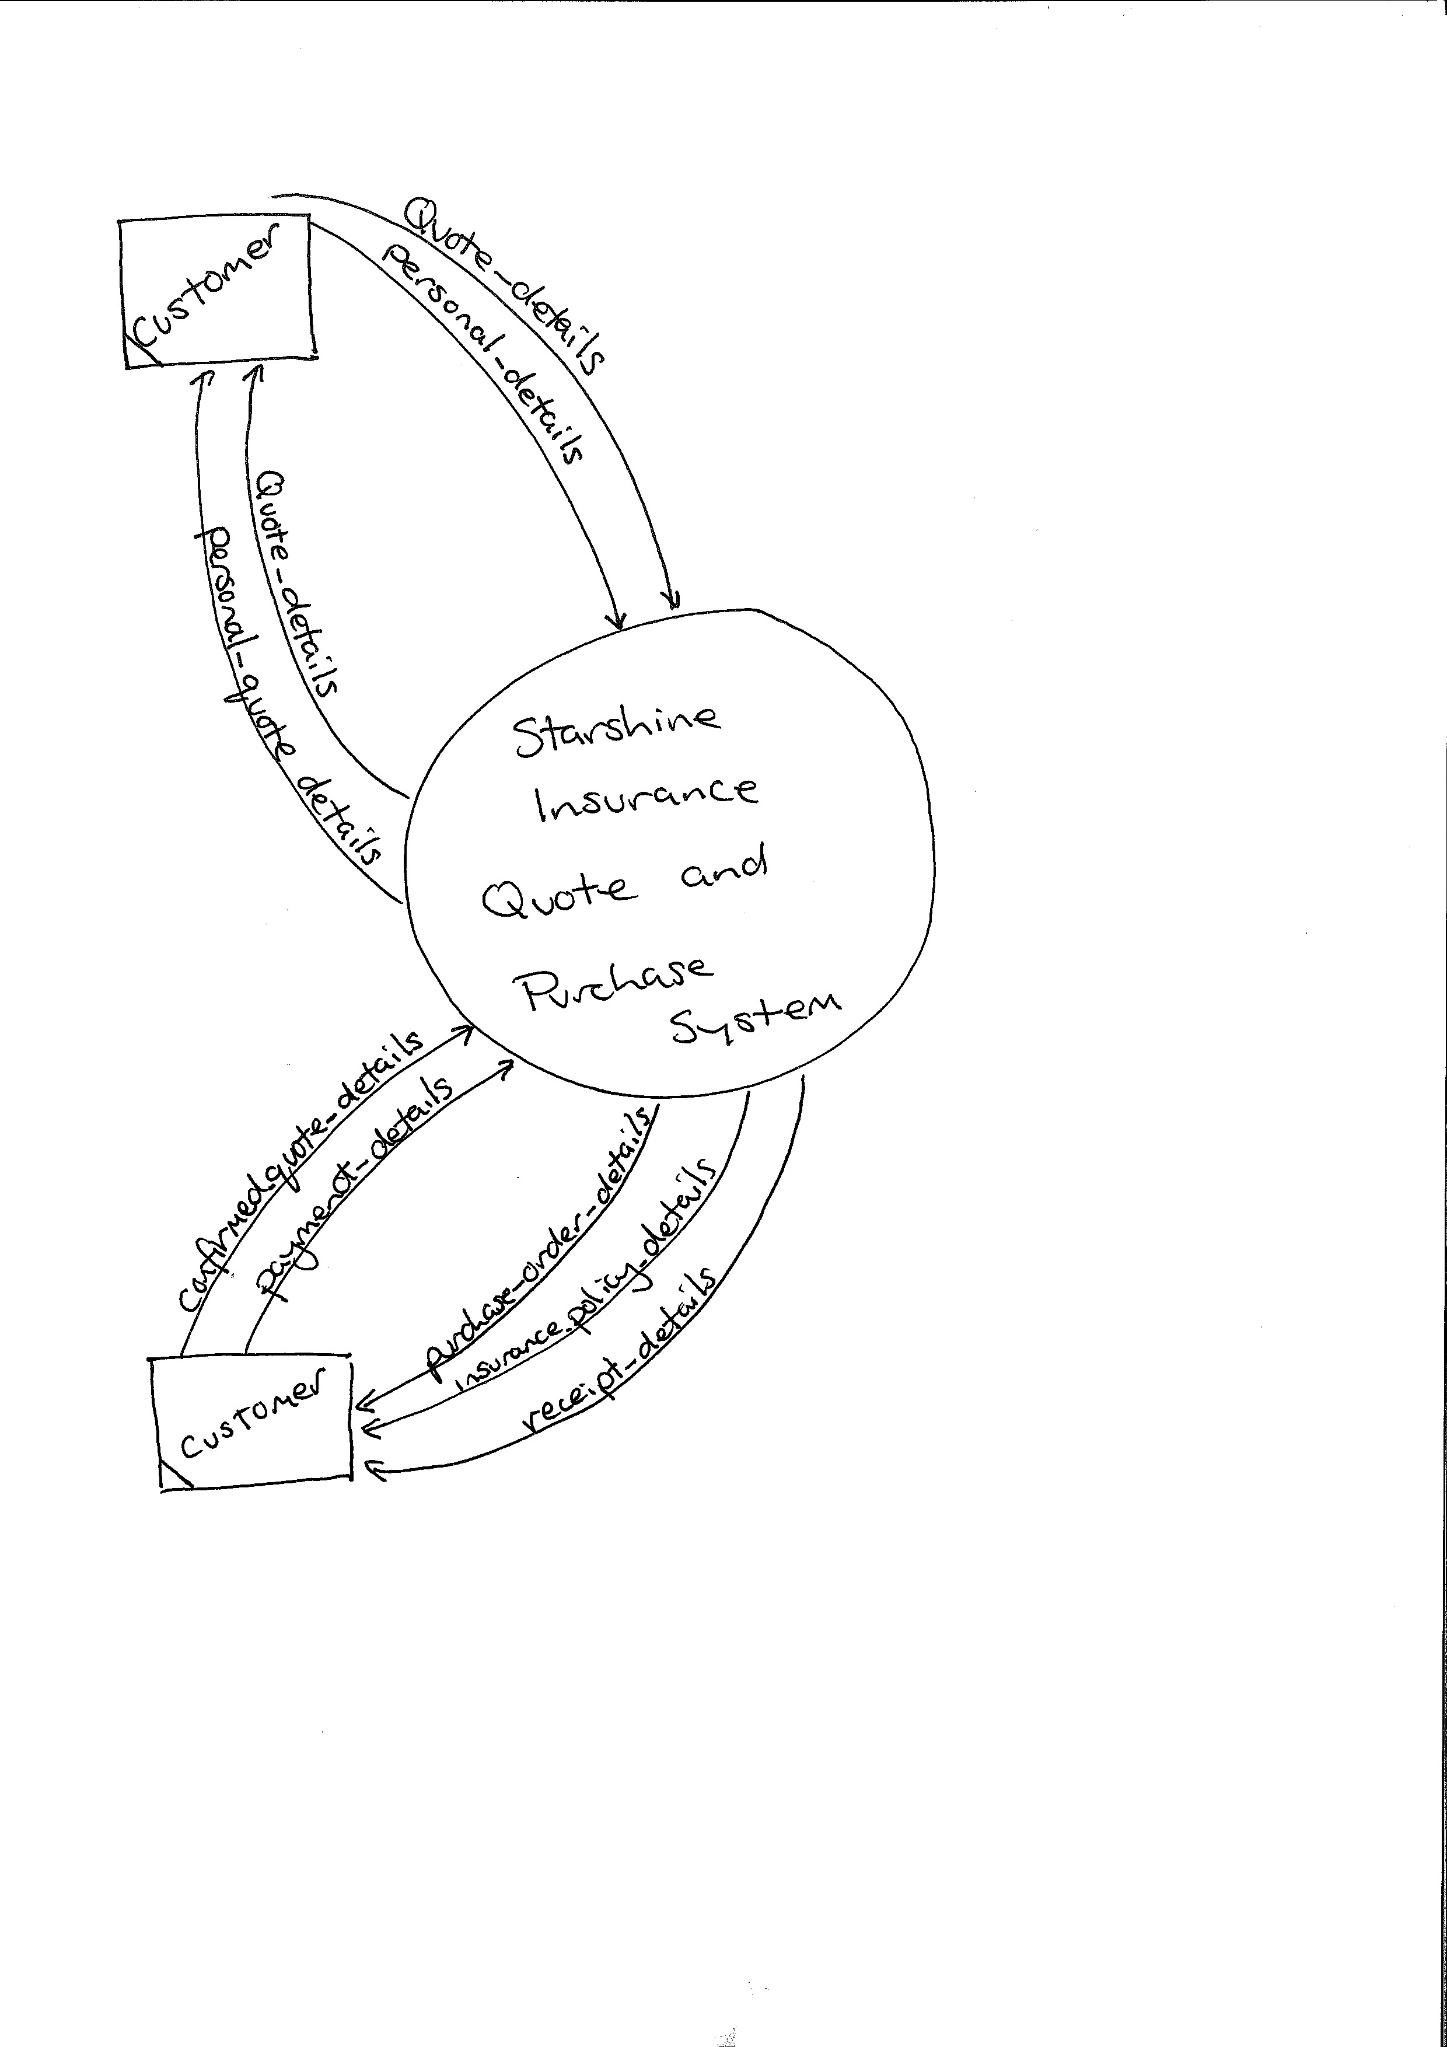 Customer
Quote_details
personal_details
Quote_details
personal_quote details
Starshine
Insurance
Quote and
Purchase
System
confirmed_quote_details
payment_details
purchase_order_details
insurance_policy_details
receipt_details
Customer